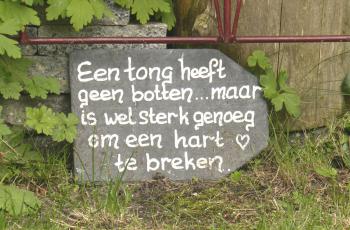 Een tong heeft
geen botten...maar
is wel sterk genoeg
om een hart ♡
te breken..